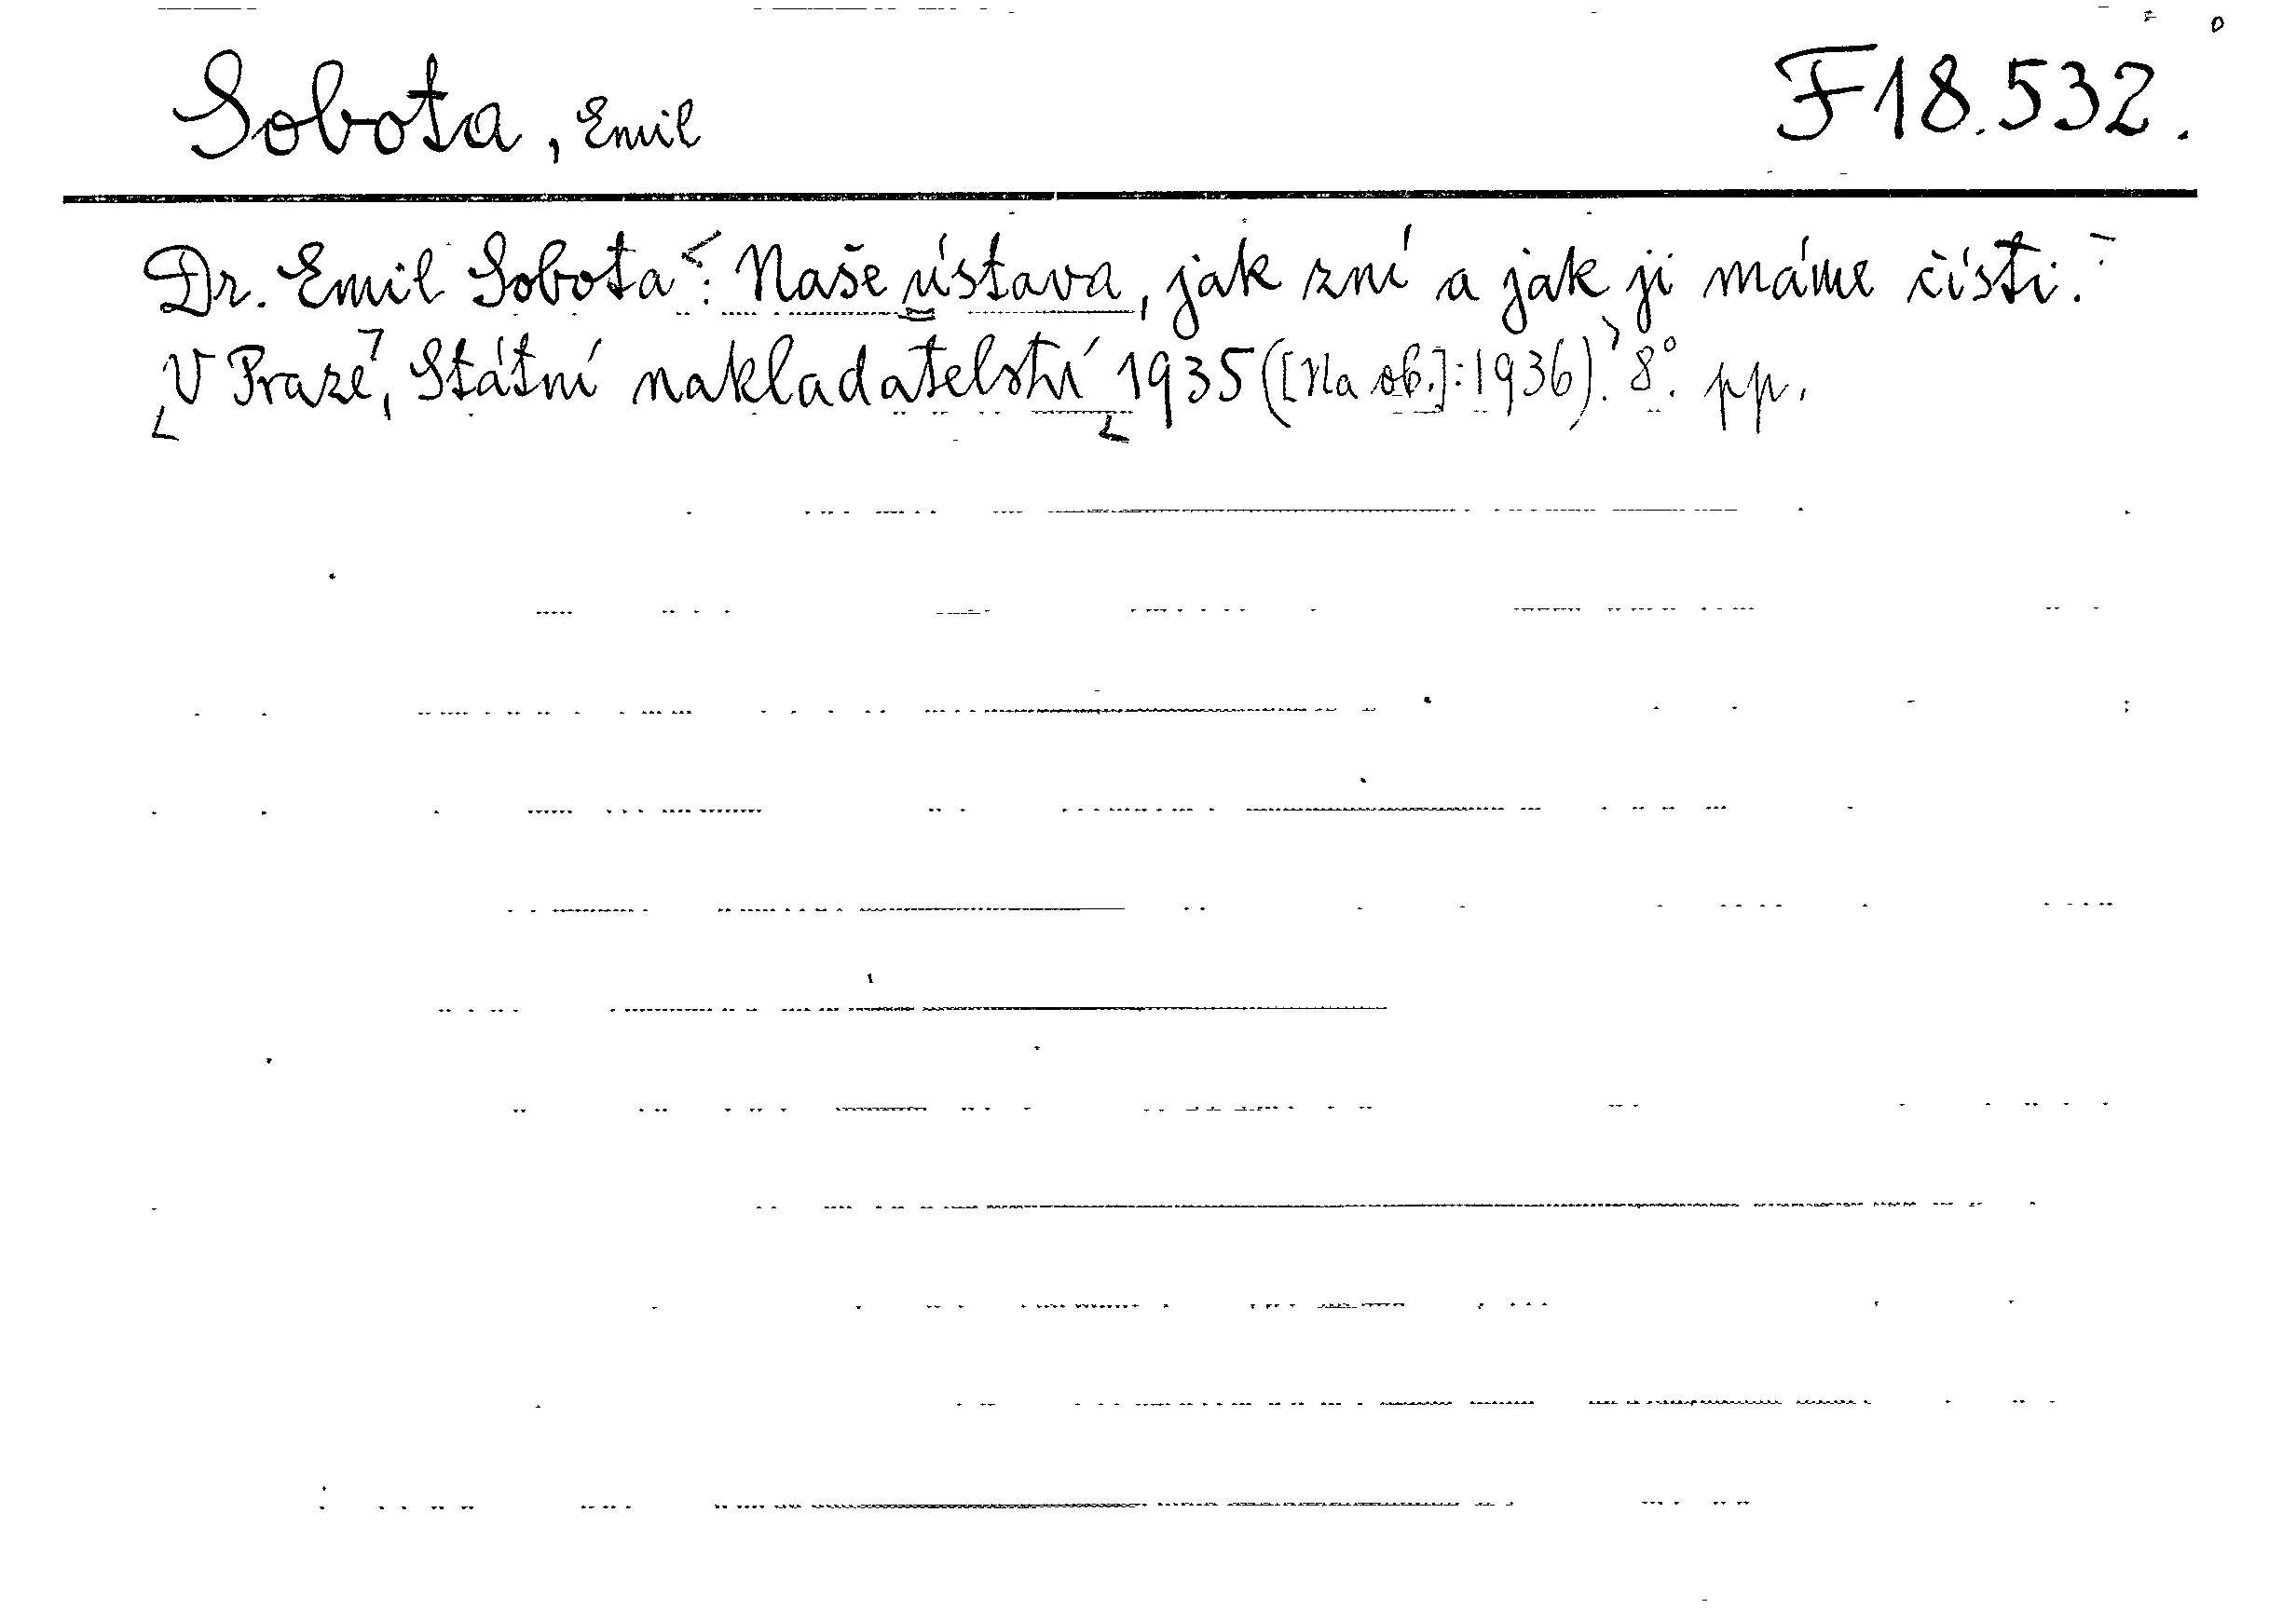 Sobota, Emil
F 18.532.
Dr. Emil Sobota: Naše ústava, jak zní a jak ji máme čísti.
V Praze, Státní nakladatelství 1935 ([Na ob.]: 1936). 8°. pp.